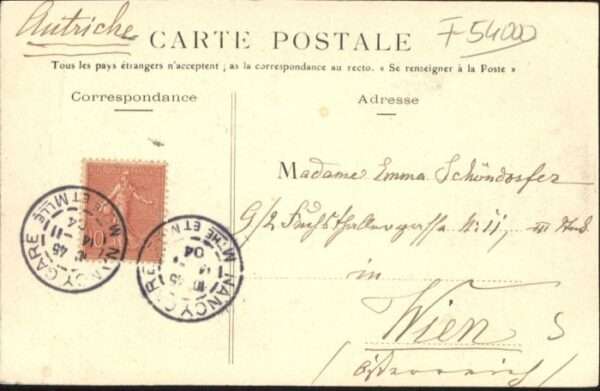 Autriche
F 54000
CARTE POSTALE
Tous les pays étrangers n'acceptent pas la correspondance au recto. « Se renseigner à la Poste »
Correspondance
Adresse
Madame Emma Schöndorfer
9/2 Fuchsthallergasse N: 11, III
in
Wien
Österreich
NANCY GARE
MTHE ET MLLE
10
NANCY GARE
MTHE ET M
04